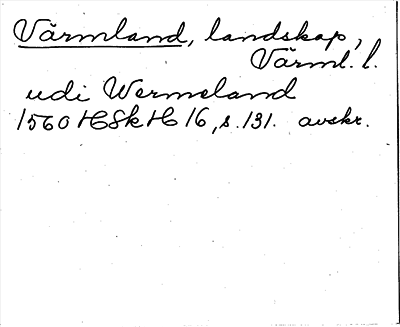 Värmland, landskap,
Värml. l.
udi Wermeland
1560 HSkH 16, s. 131. avskr.